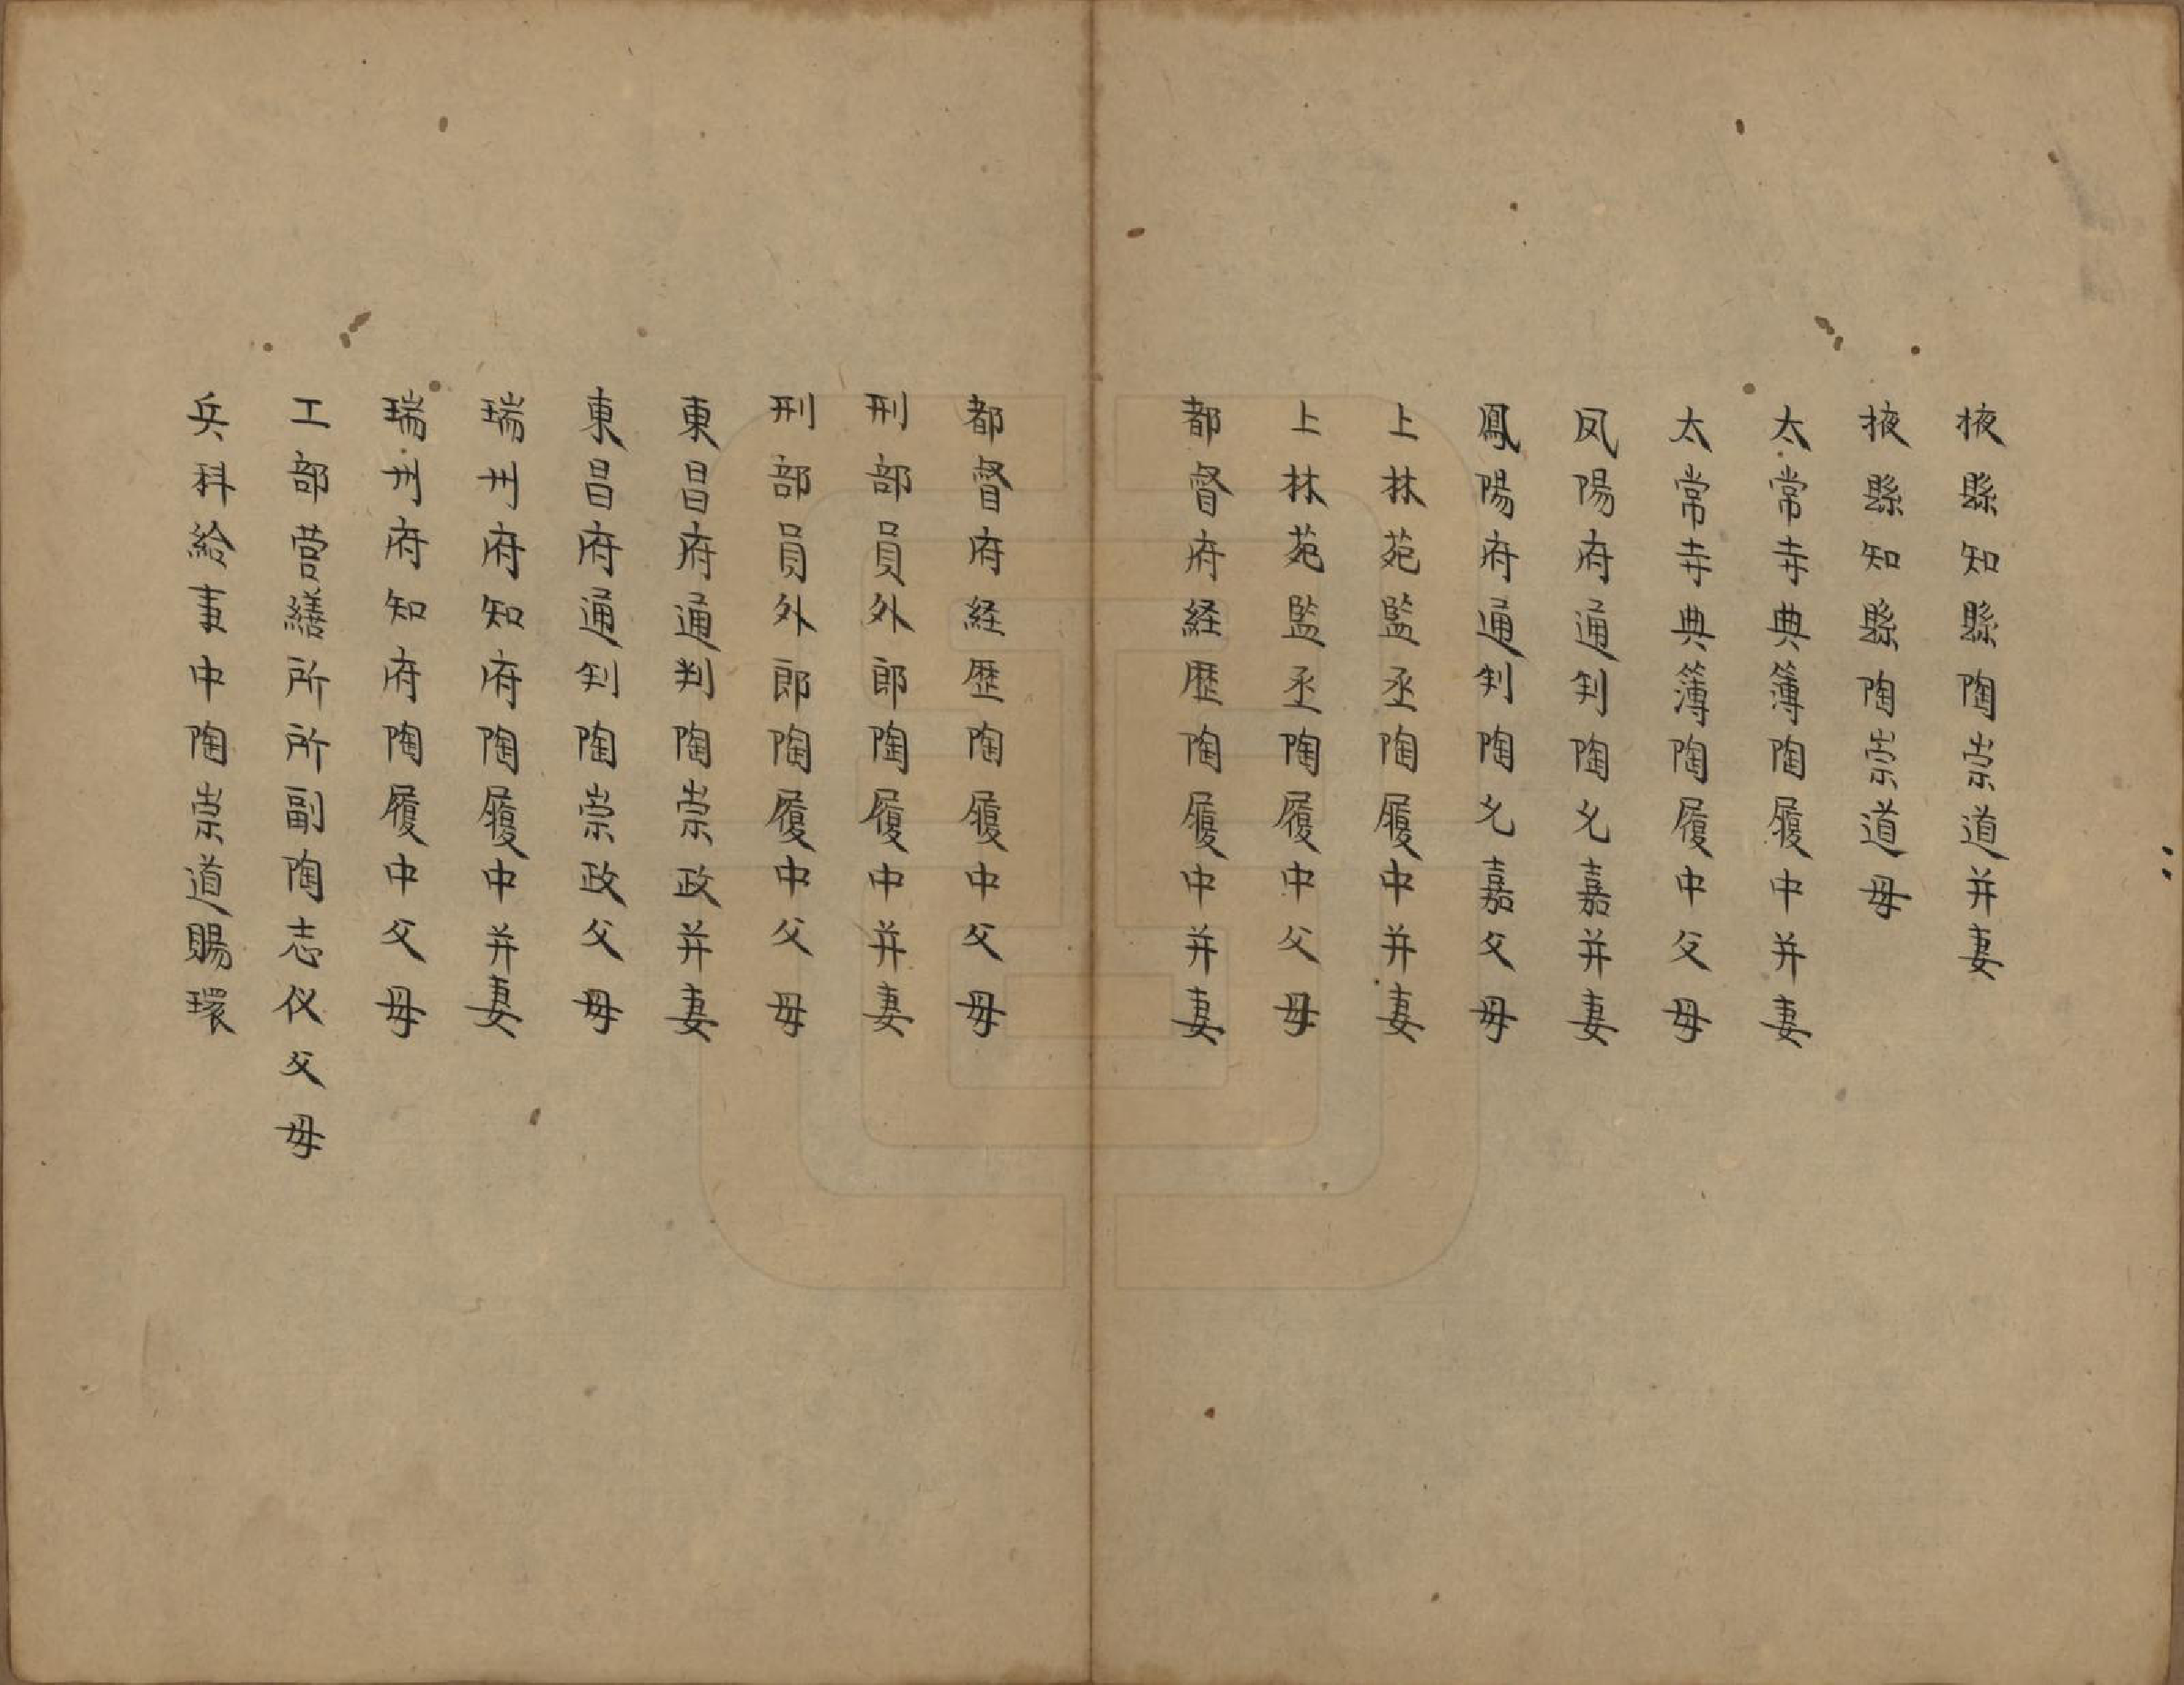 掖縣知縣陶崇道并妻
掖縣知縣陶崇道母
太常寺典簿陶履中并妻
太常寺典簿陶履中父母
凤陽府通判陶允嘉并妻
鳳陽府通判陶允嘉父母
上林苑監丞陶履中并妻
上林苑監丞陶履中父母
都督府経歴陶履中并妻
都督府経歴陶履中父母
刑部員外郎陶履中并妻
刑部員外郎陶履中父母
東昌府通判陶崇政并妻
東昌府通判陶崇政父母
瑞州府知府陶履中并妻
瑞州府知府陶履中父母
工部营繕所所副陶志仪父母
兵科給事中陶崇道賜環